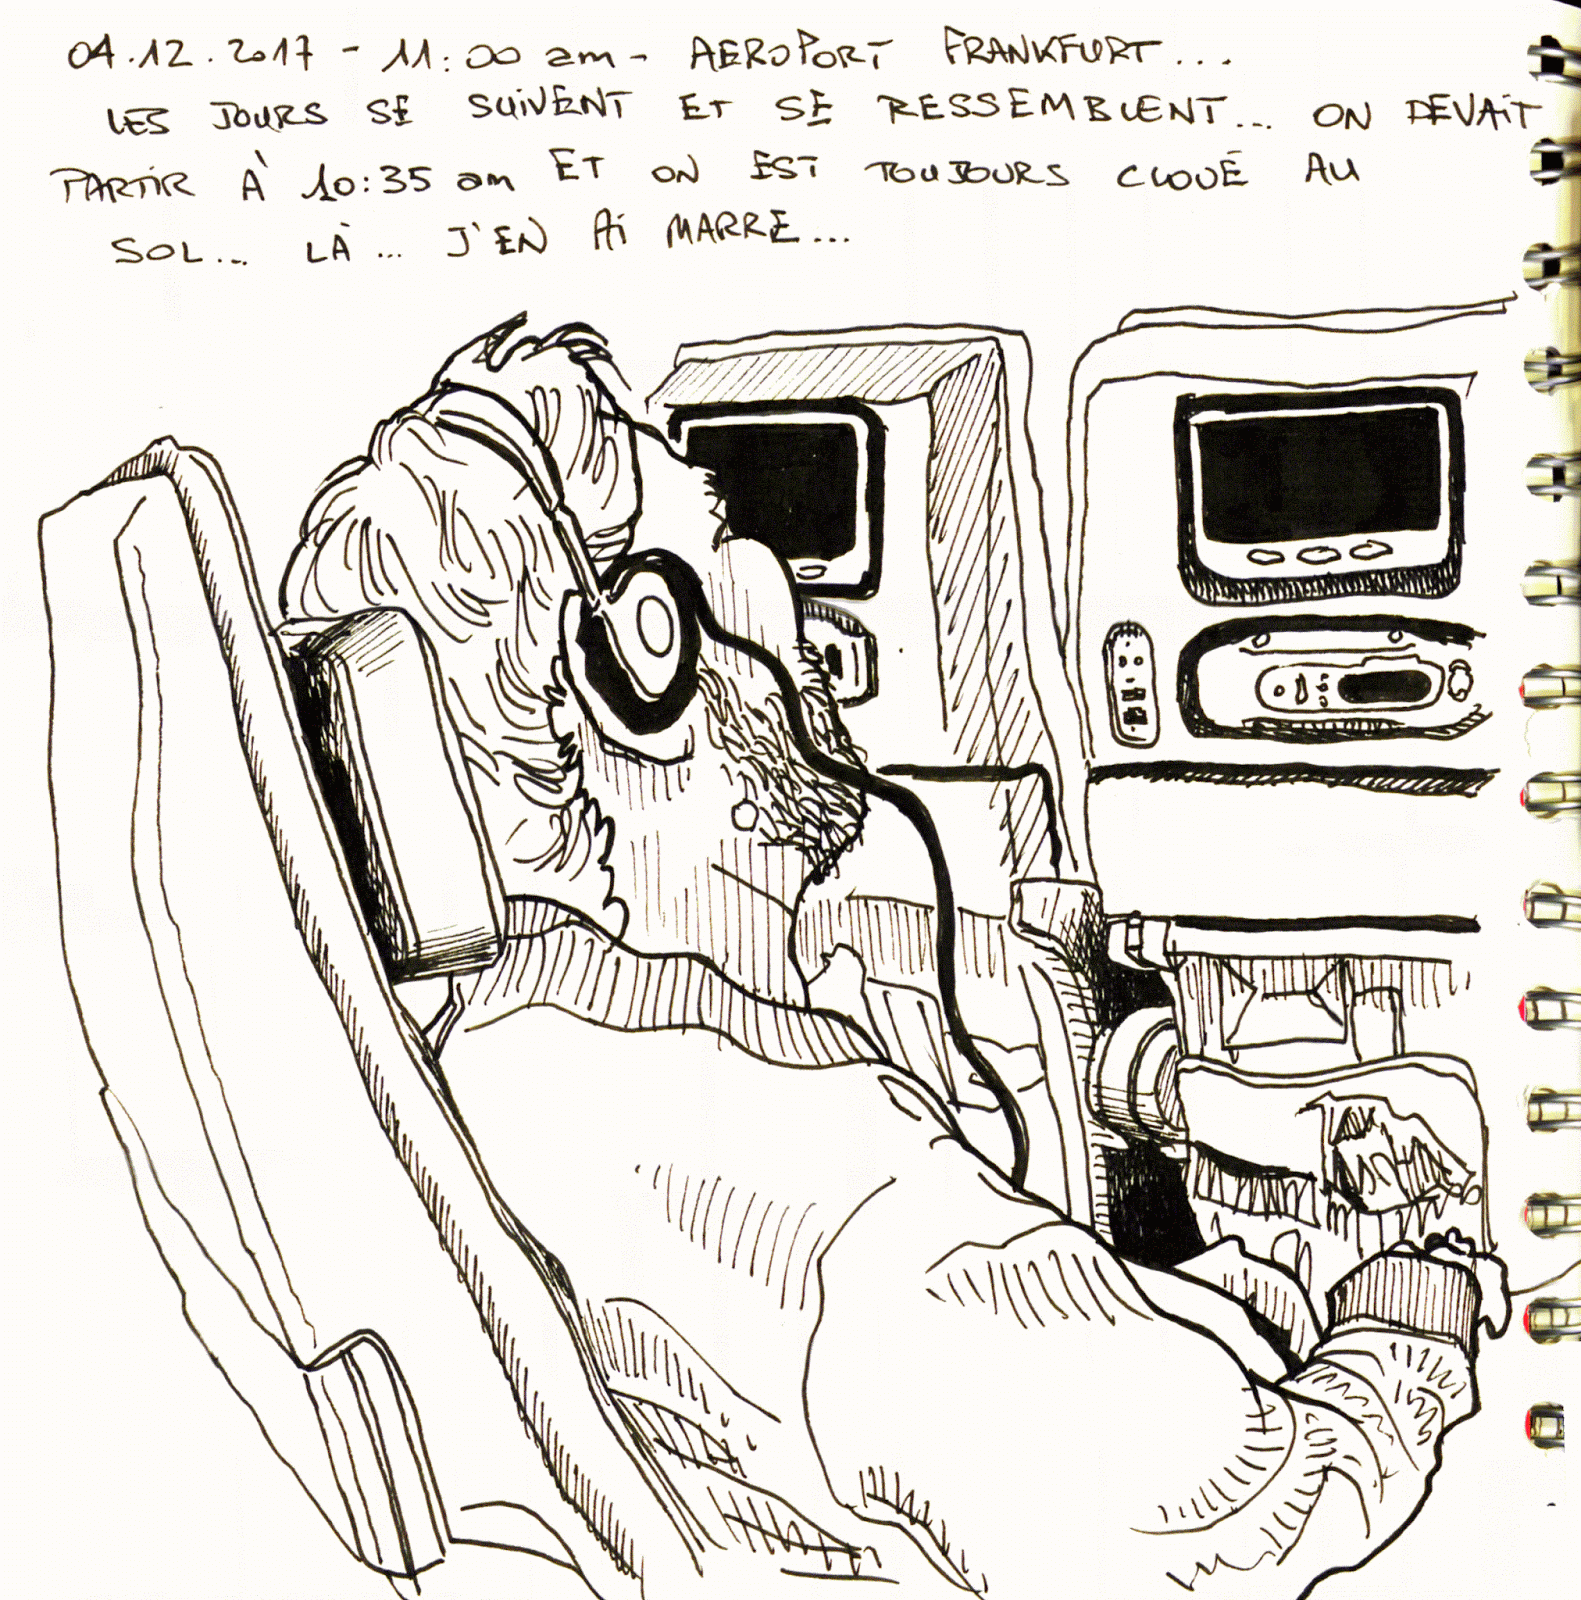 04.12.2017 - 11:00 am - AEROPORT FRANKFURT...
LES JOURS SE SUIVENT ET SE RESSEMBLENT... ON DEVAIT
PARTIR À 10:35 am ET ON EST TOUJOURS CLOUÉ AU
SOL... LÀ... J'EN AI MARRE...